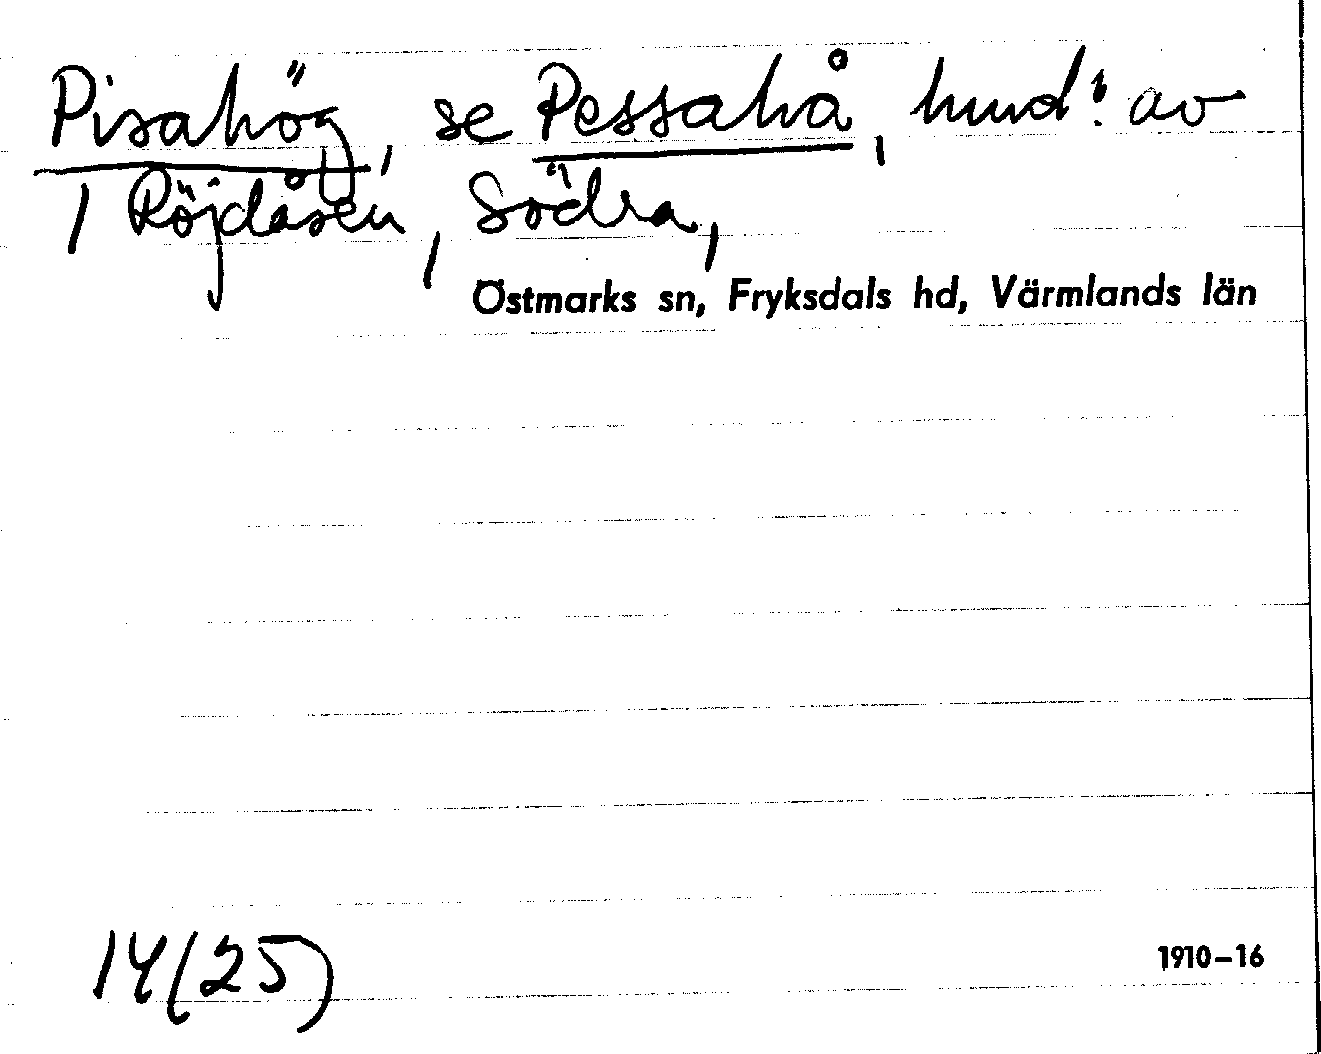 Pisahög, se Pessahå, hmd: av
1 Röjdåsen, Södra,
Östmarks sn, Fryksdals hd, Värmlands län
14(25)
1910–16